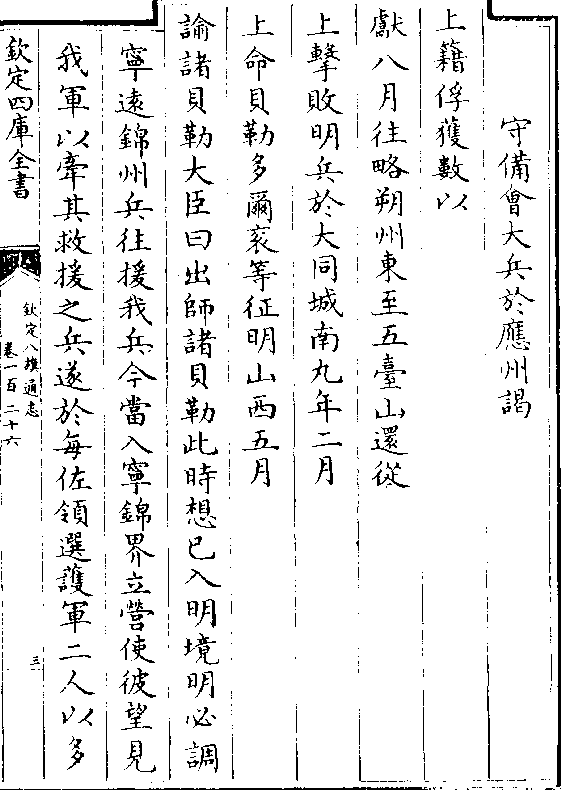 守備會大兵於應州謁
上籍俘獲數以
獻八月往略朔州東至五臺山還從
上擊敗明兵於大同城南九年二月
上命貝勒多爾袞等征明山西五月
諭諸貝勒大臣曰出師諸貝勒此時想已入明境明必調
寧遠錦州兵往援我兵今當入寧錦界立營使彼望見
我軍以牽其救援之兵遂於每佐領選護軍二人以多
欽定四庫全書
欽定八旗通志
卷一百二十六
三